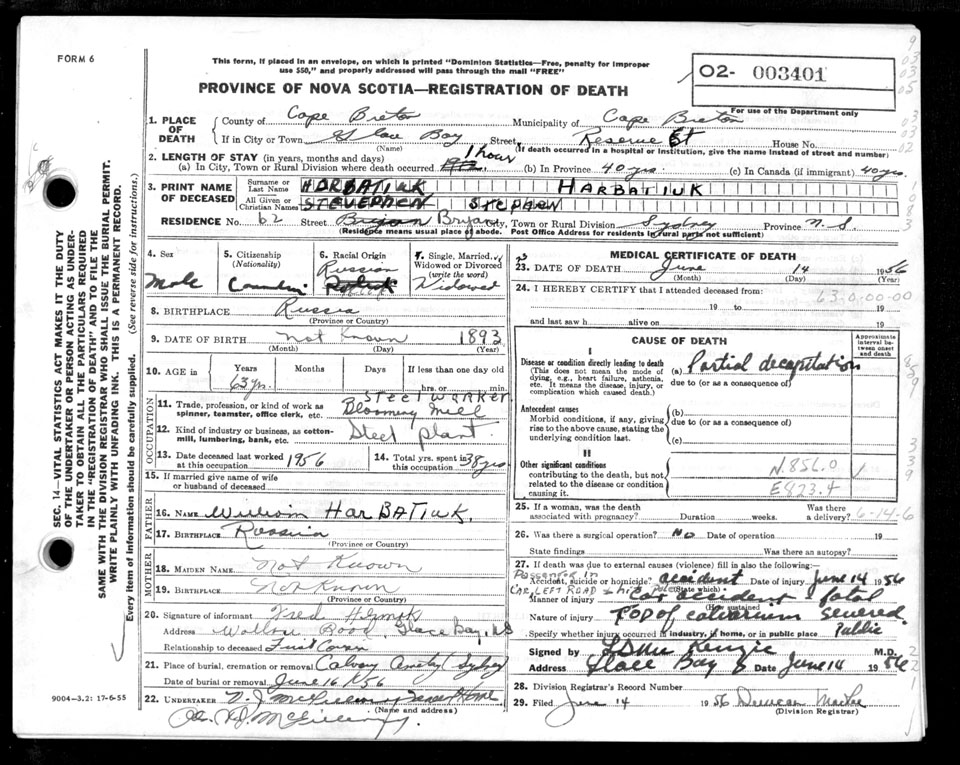 FORM 6
This form, if placed in an envelope, on which is printed "Dominion Statistics—Free, penalty for improper
use $50," and properly addressed will pass through the mail "FREE"
02- 003401
For use of the Department only
PROVINCE OF NOVA SCOTIA—REGISTRATION OF DEATH
1. PLACE OF DEATH { County of Cape Breton Municipality of Cape Breton
If in City or Town Glace Bay Street Reserve St House No.
(Name) (If death occurred in a hospital or institution, give the name instead of street and number)
2. LENGTH OF STAY (in years, months and days) 1 hour
(a) In City, Town or Rural Division where death occurred (b) In Province 40 yrs. (c) In Canada (if immigrant) 40 yrs.
3. PRINT NAME OF DECEASED { Surname or Last Name HORBATIUK HARBATIUK
All Given or Christian Names STEVEPHEN STEPHEN
RESIDENCE No. 62 Street Bryan City, Town or Rural Division Sydney Province N.S.
(Residence means usual place of abode. Post Office Address for residents in rural parts not sufficient)
4. Sex Male
5. Citizenship (Nationality) Canadian
6. Racial Origin Russian
7. Single, Married, Widowed or Divorced (write the word) Widowed
8. BIRTHPLACE Russia
(Province or Country)
9. DATE OF BIRTH Not Known 1893
(Month) (Day) (Year)
10. AGE in Years Months Days If less than one day old
63 yrs. hrs. or min.
OCCUPATION
11. Trade, profession, or kind of work as spinner, teamster, office clerk, etc. STEEL WORKER Blooming Mill
12. Kind of industry or business, as cotton-mill, lumbering, bank, etc. Steel plant
13. Date deceased last worked at this occupation 1956
14. Total yrs. spent in this occupation 38 yrs
15. If married give name of wife or husband of deceased
FATHER
16. NAME William HARBATIUK.
17. BIRTHPLACE Russia
(Province or Country)
MOTHER
18. MAIDEN NAME Not Known
19. BIRTHPLACE Not Known
(Province or Country)
20. Signature of informant Fred
Address Wallace Road, Glace Bay, NS
Relationship to deceased First Cousin
21. Place of burial, cremation or removal Calvary (Sydney)
Date of burial or removal June 16, 1956
22. UNDERTAKER
(Name and address)
9004—3.2: 17-6-55
MEDICAL CERTIFICATE OF DEATH
23. DATE OF DEATH June 14 1956
(Month) (Day) (Year)
24. I HEREBY CERTIFY that I attended deceased from:
63-0-00-00
19 to 19
and last saw h alive on 19
CAUSE OF DEATH
Approximate interval between onset and death
I
Disease or condition directly leading to death (a) Partial decapitation
(This does not mean the mode of dying, e.g., heart failure, asthenia, etc. It means the disease, injury, or complication which caused death.)
due to (or as a consequence of)
Antecedent causes
Morbid conditions, if any, giving rise to the above cause, stating the underlying condition last.
(b)
due to (or as a consequence of)
(c)
II
Other significant conditions
contributing to the death, but not related to the disease or condition causing it.
N.856.0
E823.4
25. If a woman, was the death associated with pregnancy? Duration weeks. Was there a delivery? 6-14-6
26. Was there a surgical operation? No Date of operation 19
State findings Was there an autopsy?
27. If death was due to external causes (violence) fill in also the following:
Passenger in
Accident, suicide or homicide? accident Date of injury June 14 1956
(State which)
CAR LEFT ROAD + hit pole
Manner of injury car accident fatal
(How sustained)
Nature of injury TOP of calvarium severed
Specify whether injury occurred in industry, if home, or in public place Public
Signed by M.D.
Address Glace Bay Date June 14 1956
28. Division Registrar's Record Number
29. Filed June 14 1956 Duncan
(Division Registrar)
SEC. 14—VITAL STATISTICS ACT MAKES IT THE DUTY
OF THE UNDERTAKER OR PERSON ACTING AS UNDER-
TAKER TO OBTAIN ALL THE PARTICULARS REQUIRED
IN THE "REGISTRATION OF DEATH" AND TO FILE THE
SAME WITH THE DIVISION REGISTRAR WHO SHALL ISSUE THE BURIAL PERMIT.
WRITE PLAINLY WITH UNFADING INK. THIS IS A PERMANENT RECORD.
Every item of information should be carefully supplied. (See reverse side for instructions.)